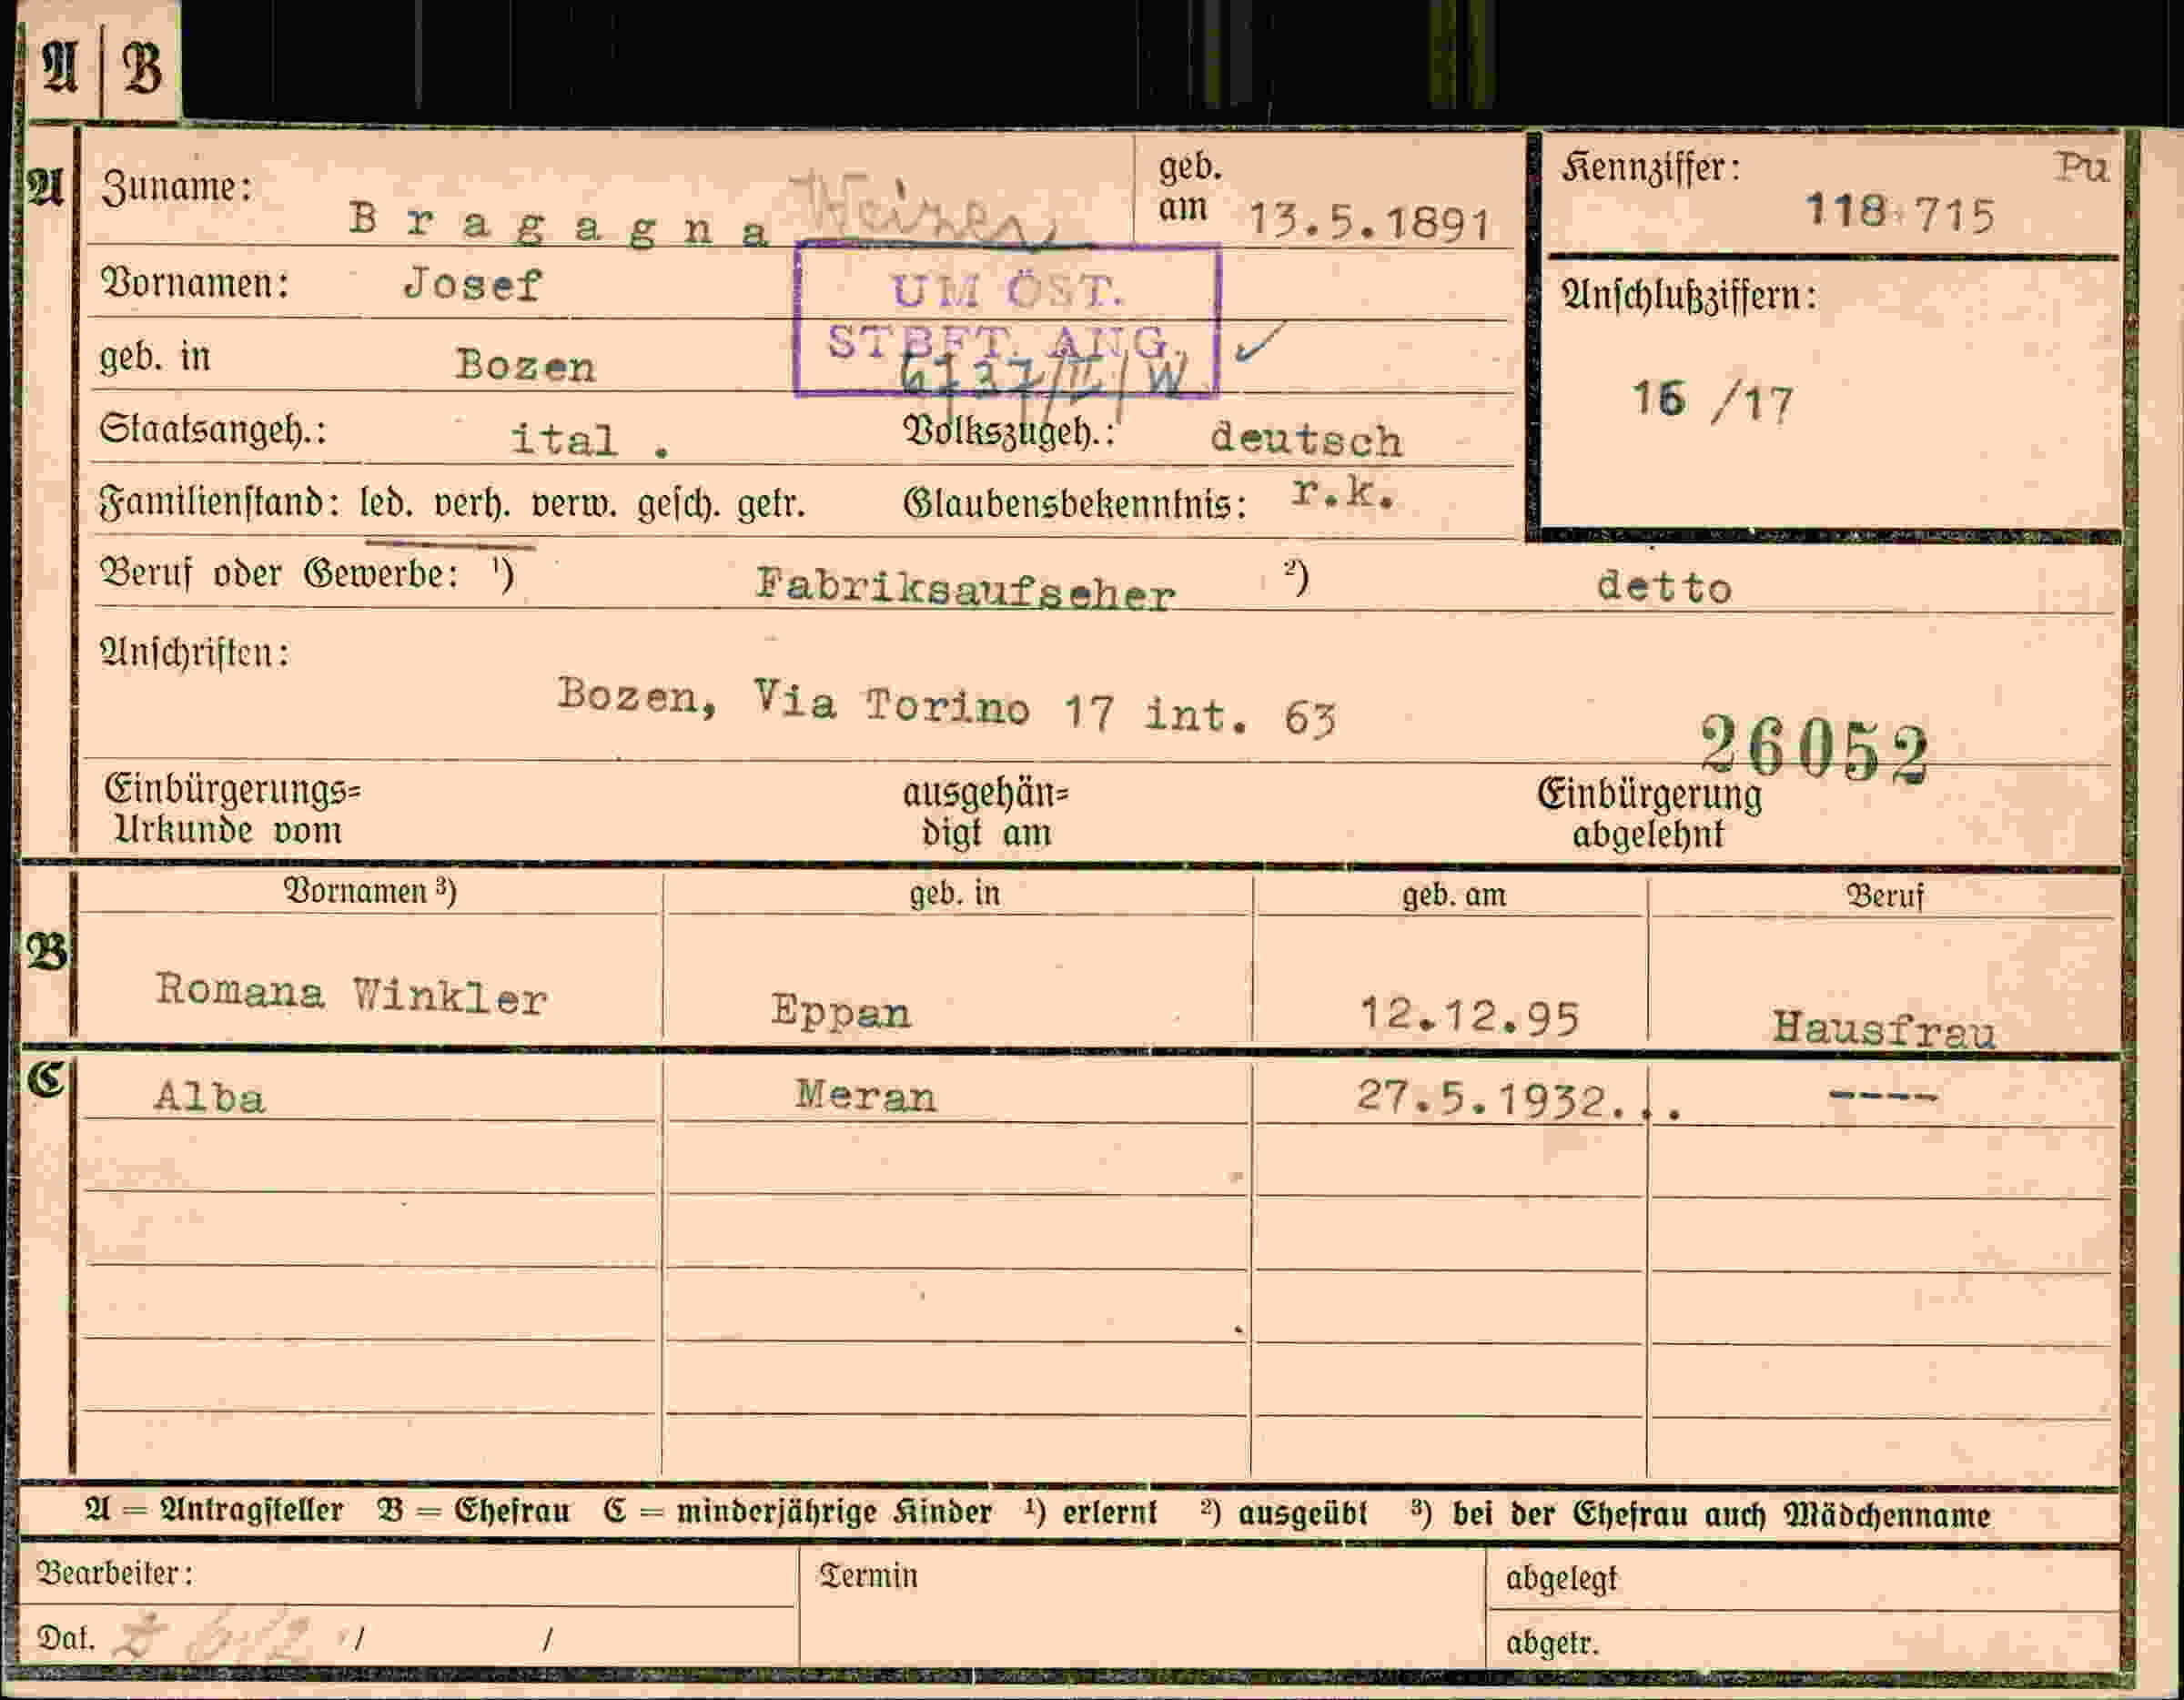 A | B
A Zuname: Bragagna geb. am 13.5.1891 Kennziffer: Pu
118 715
Vornamen: Josef UM ÖST. Anschlußziffern:
geb. in Bozen STBFT. ANG. ✓
6737/II/W
16 /17
Staatsangeh.: ital . Volkszugeh.: deutsch
Familienstand: led. verh. verw. gesch. getr. Glaubensbekenntnis: r.k.
Beruf oder Gewerbe: ¹) Fabriksaufseher ²) detto
Anschriften:
Bozen, Via Torino 17 int. 63
26052
Einbürgerungs= ausgehän= Einbürgerung
Urkunde vom digt am abgelehnt
B Vornamen ³) geb. in geb. am Beruf
Romana Winkler Eppan 12.12.95 Hausfrau
C Alba Meran 27.5.1932... ----
A = Antragsteller B = Ehefrau C = minderjährige Kinder ¹) erlernt ²) ausgeübt ³) bei der Ehefrau auch Mädchenname
Bearbeiter: Termin abgelegt
Dat. / / abgetr.